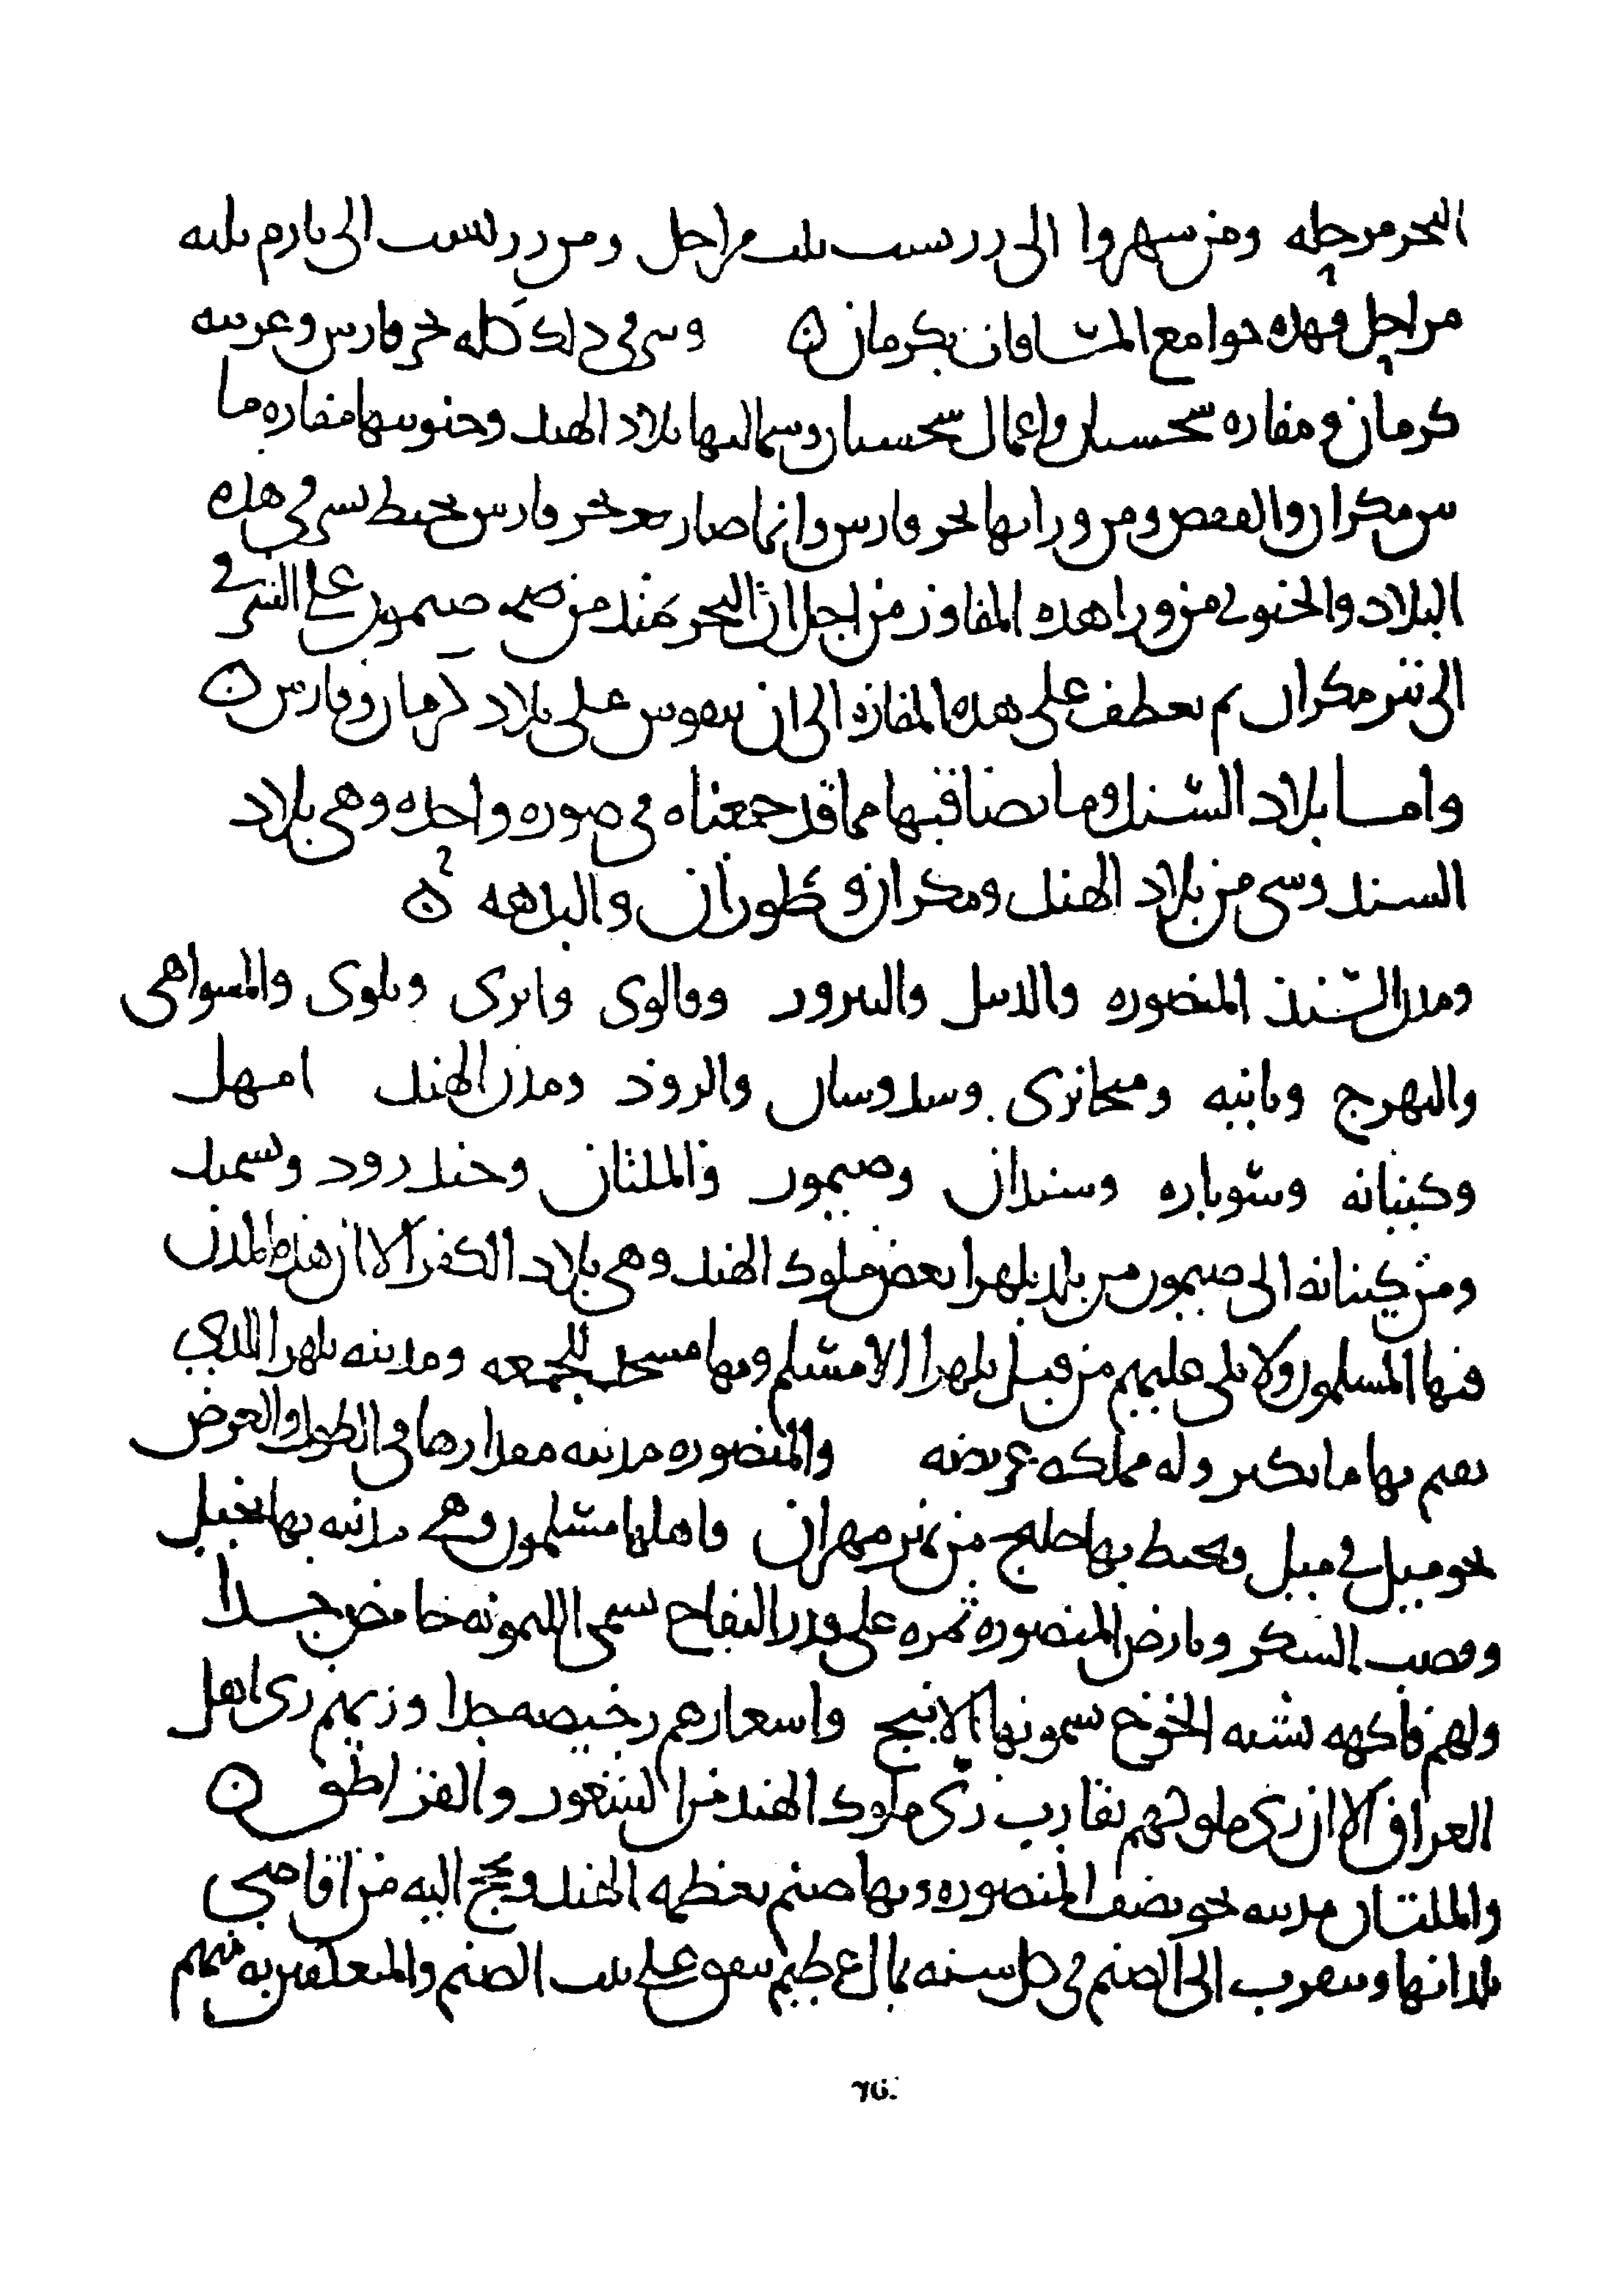 البحر مرحله ومن سهروا الى دردست ثلث مراحل ومن دردست الى بارم ثلثه
مراحل فهذه جوامع المسافات بكرمان ن وشرقي ذلك كله بحر فارس وغربيه
كرمان ومفازه سجستان واعمال سجستان وشماليها بلاد الهند وجنوبيها مفازه ما
بين مكران والقفص ومن ورايها بحر فارس وانما صار بعد بحر فارس يحيط بشرقي هذه
البلاد والجنوبي من ورا هذه المفاوز من اجل ان البحر يمتد من صيمور على الشرقي
الى تيز مكران ثم يعطف على هذه المفازه الى ان يتقوس على بلاد كرمان وفارس ن
واما بلاد السند وما يصاقبها مما قد جمعناه في صوره واحده وهي بلاد
السند وشي من بلاد الهند ومكران وطوران والبدهه ن
ومدن السند المنصوره والديبل والبيرور وقالوى وانرى وبلوى والمسواهى
والبهرج وبانيه ومنحاترى وسدوسان والروذ ومدن الهند امهل
وكنبايه وسوباره وسندان وصيمور والملتان وجندرود وبسمد
ومن كنبايه الى صيمور من بلد بلهرا بعض ملوك الهند وهي بلاد الكفر الا ان هذه المدن
فيها المسلمون ولا يلى عليهم من قبل بلهرا الا مسلم وبها مسجد للجمعه ومدينه بلهرا الذي
يقيم بها مانكير وله مملكه عريضه والمنصوره مدينه مقدارها في الطول والعرض
نحو ميل في ميل ويحيط بها خليج من نهر مهران واهلها مسلمون وهي مدينه بها نخيل
وقصب السكر وبارض المنصوره ثمره على قدر التفاح تسمى الليمونه حامض جدا
ولهم فاكهه تشبه الخوخ يسمونها الانبج واسعارهم رخيصه جدا وزيهم زى اهل
العراق الا ان زى ملوكهم يقارب زى ملوك الهند من الشعور والقراطق ن
والملتان مدينه نحو نصف المنصوره وبها صنم يعظمه الهند ويحج اليه من اقاصي
بلدانها ويتقرب الى الصنم في كل سنه بمال عظيم ينفق على بيت الصنم والمعتكفين به منهم